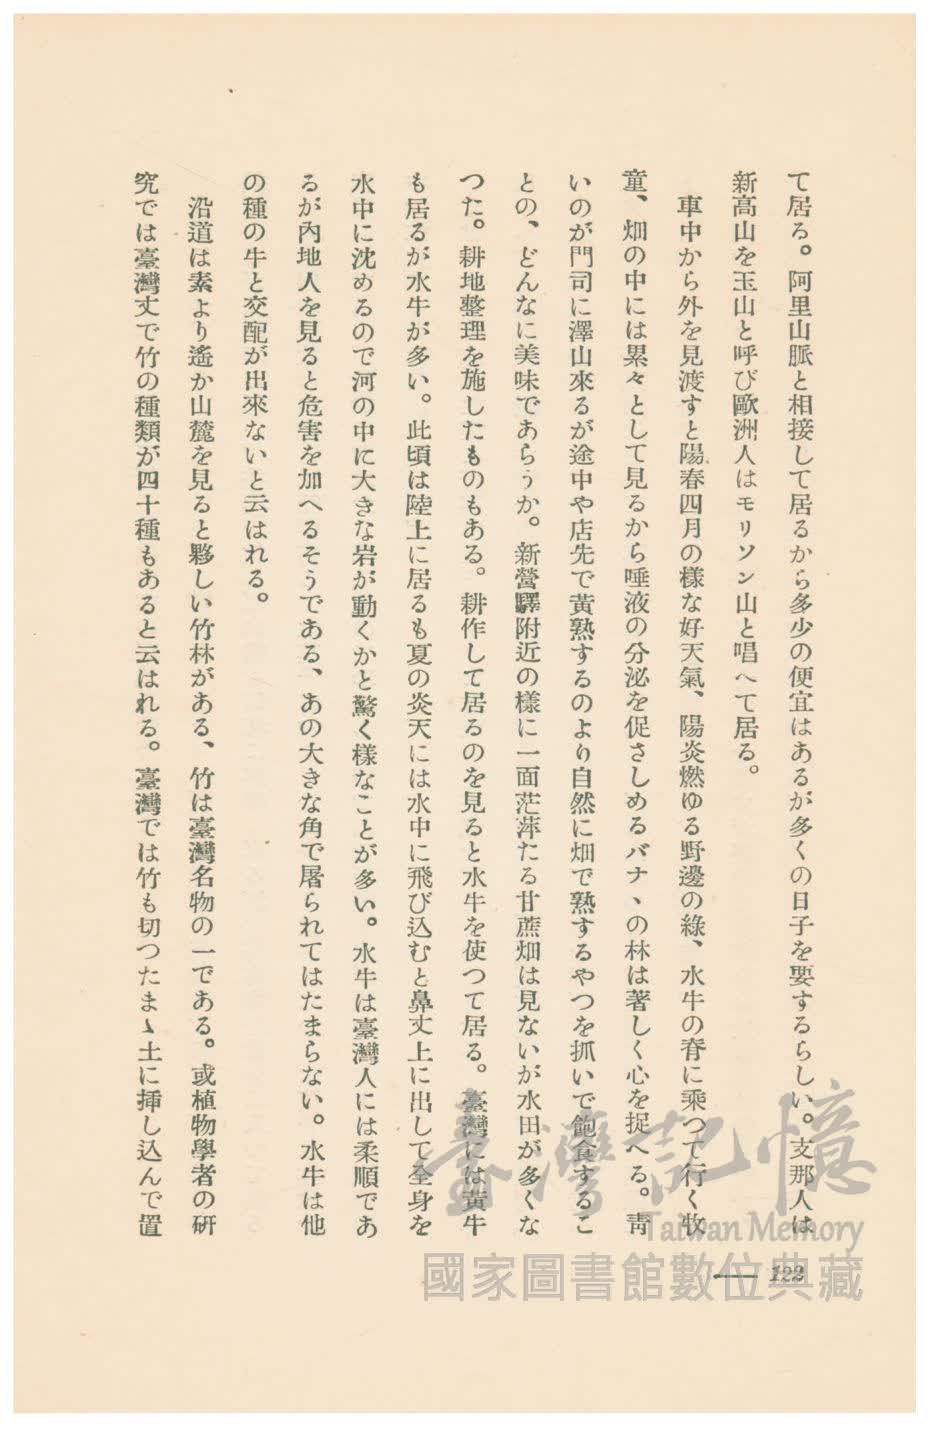 て居る。阿里山脈と相接して居るから多少の便宜はあるが多くの日子を要するらしい。支那人は
新高山を玉山と呼び歐洲人はモリソン山と唱へて居る。
車中から外を見渡すと陽春四月の樣な好天氣、陽炎燃ゆる野邊の綠、水牛の脊に乘つて行く牧
童、畑の中には累々として見るから唾液の分泌を促さしめるバナヽの林は著しく心を捉へる。靑
いのが門司に澤山來るが途中や店先で黃熟するのより自然に畑で熟するやつを抓いで飽食するこ
との、どんなに美味であらうか。新營驛附近の樣に一面茫萍たる甘蔗畑は見ないが水田が多くな
つた。耕地整理を施したものもある。耕作して居るのを見ると水牛を使つて居る。臺灣には黃牛
も居るが水牛が多い。此頃は陸上に居るも夏の炎天には水中に飛び込むと鼻丈上に出して全身を
水中に沈めるので河の中に大きな岩が動くかと驚く樣なことが多い。水牛は臺灣人には柔順であ
るが內地人を見ると危害を加へるそうである、あの大きな角で屠られてはたまらない。水牛は他
の種の牛と交配が出來ないと云はれる。
沿道は素より遙か山麓を見ると夥しい竹林がある、竹は臺灣名物の一である。或植物學者の硏
究では臺灣丈で竹の種類が四十種もあると云はれる。臺灣では竹も切つたまゝ土に揷し込んで置
— 123
臺灣記憶
Taiwan Memory
國家圖書館數位典藏